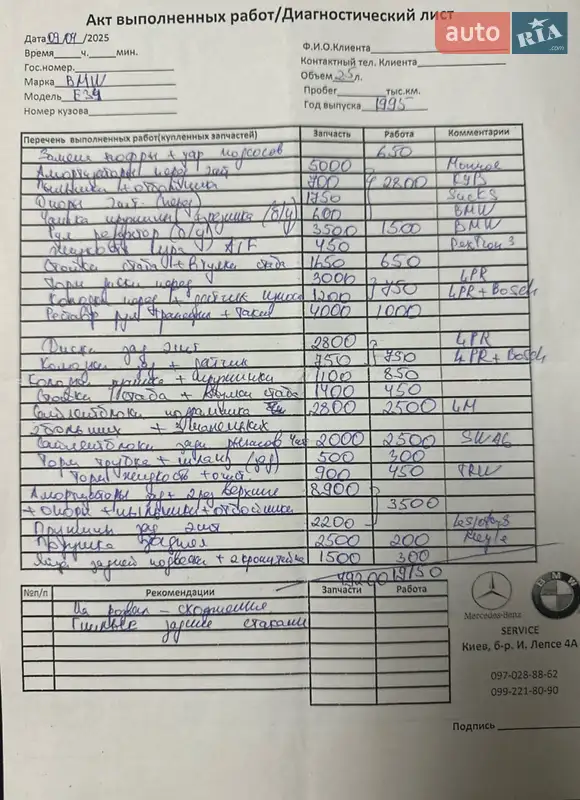 Акт выполненных работ/Диагностический лист
auto RIA .com
Дата 09/04/2025
Время ч. мин.
Гос.номер.
Марка BMW
Модель E34
Номер кузова
Ф.И.О.Клиента
Контактный тел. Клиента
Объем 2.5 л.
Пробег тыс.км.
Год выпуска 1995
Перечень выполненных работ(купленных запчастей) Запчасть Работа Комментарии
Замена 650
Амортизаторы перед 2шт 5000 Monroe
Пыльники + отбойника 700 2800 KYB
Опоры 2шт. (перед) 1750 Sacks
Чашка пружины (б/у) 600 BMW
Рул редуктор (б/у) 3500 1500 BMW
Жидкость гура ATF 450
Стойки стаба + втулки стаба 1650 650
Торм диски перед 3000 4PR
Колодки перед + датчик износа 1200 750 4PR + Bosch
Рестав рул трапеции + 4000 1000
Диски зад 2шт 2800 4PR
Колодки зад + датчик 750 750 4PR + Bosch
Колодки + пружинки 1100 850
Стойки стаба + втулки стаба 1400 450
Сайлентблоки подрамника 2800 2500 LM
2больших + 2маленьких
Сайлентблоки задн рычагов 2000 2500 SWAG
Торм трубка + шланг (зад) 500 300
Торм жидкость + 900 450 TRW
Амортизаторы зад + верхние 8900
+ опоры + пыльники + отбойники 3500
Пружины зад 2шт 2200 Lesjofors
задняя 2500 200 Meyle
задней подвески + 2кронштейна 1500 300
49200 19150
№п/п Рекомендации Запчасти Работа
На развал – схождение
задние
Mercedes-Benz
BMW
SERVICE
Киев, б-р. И. Лепсе 4А
097-028-88-62
099-221-80-90
Подпись